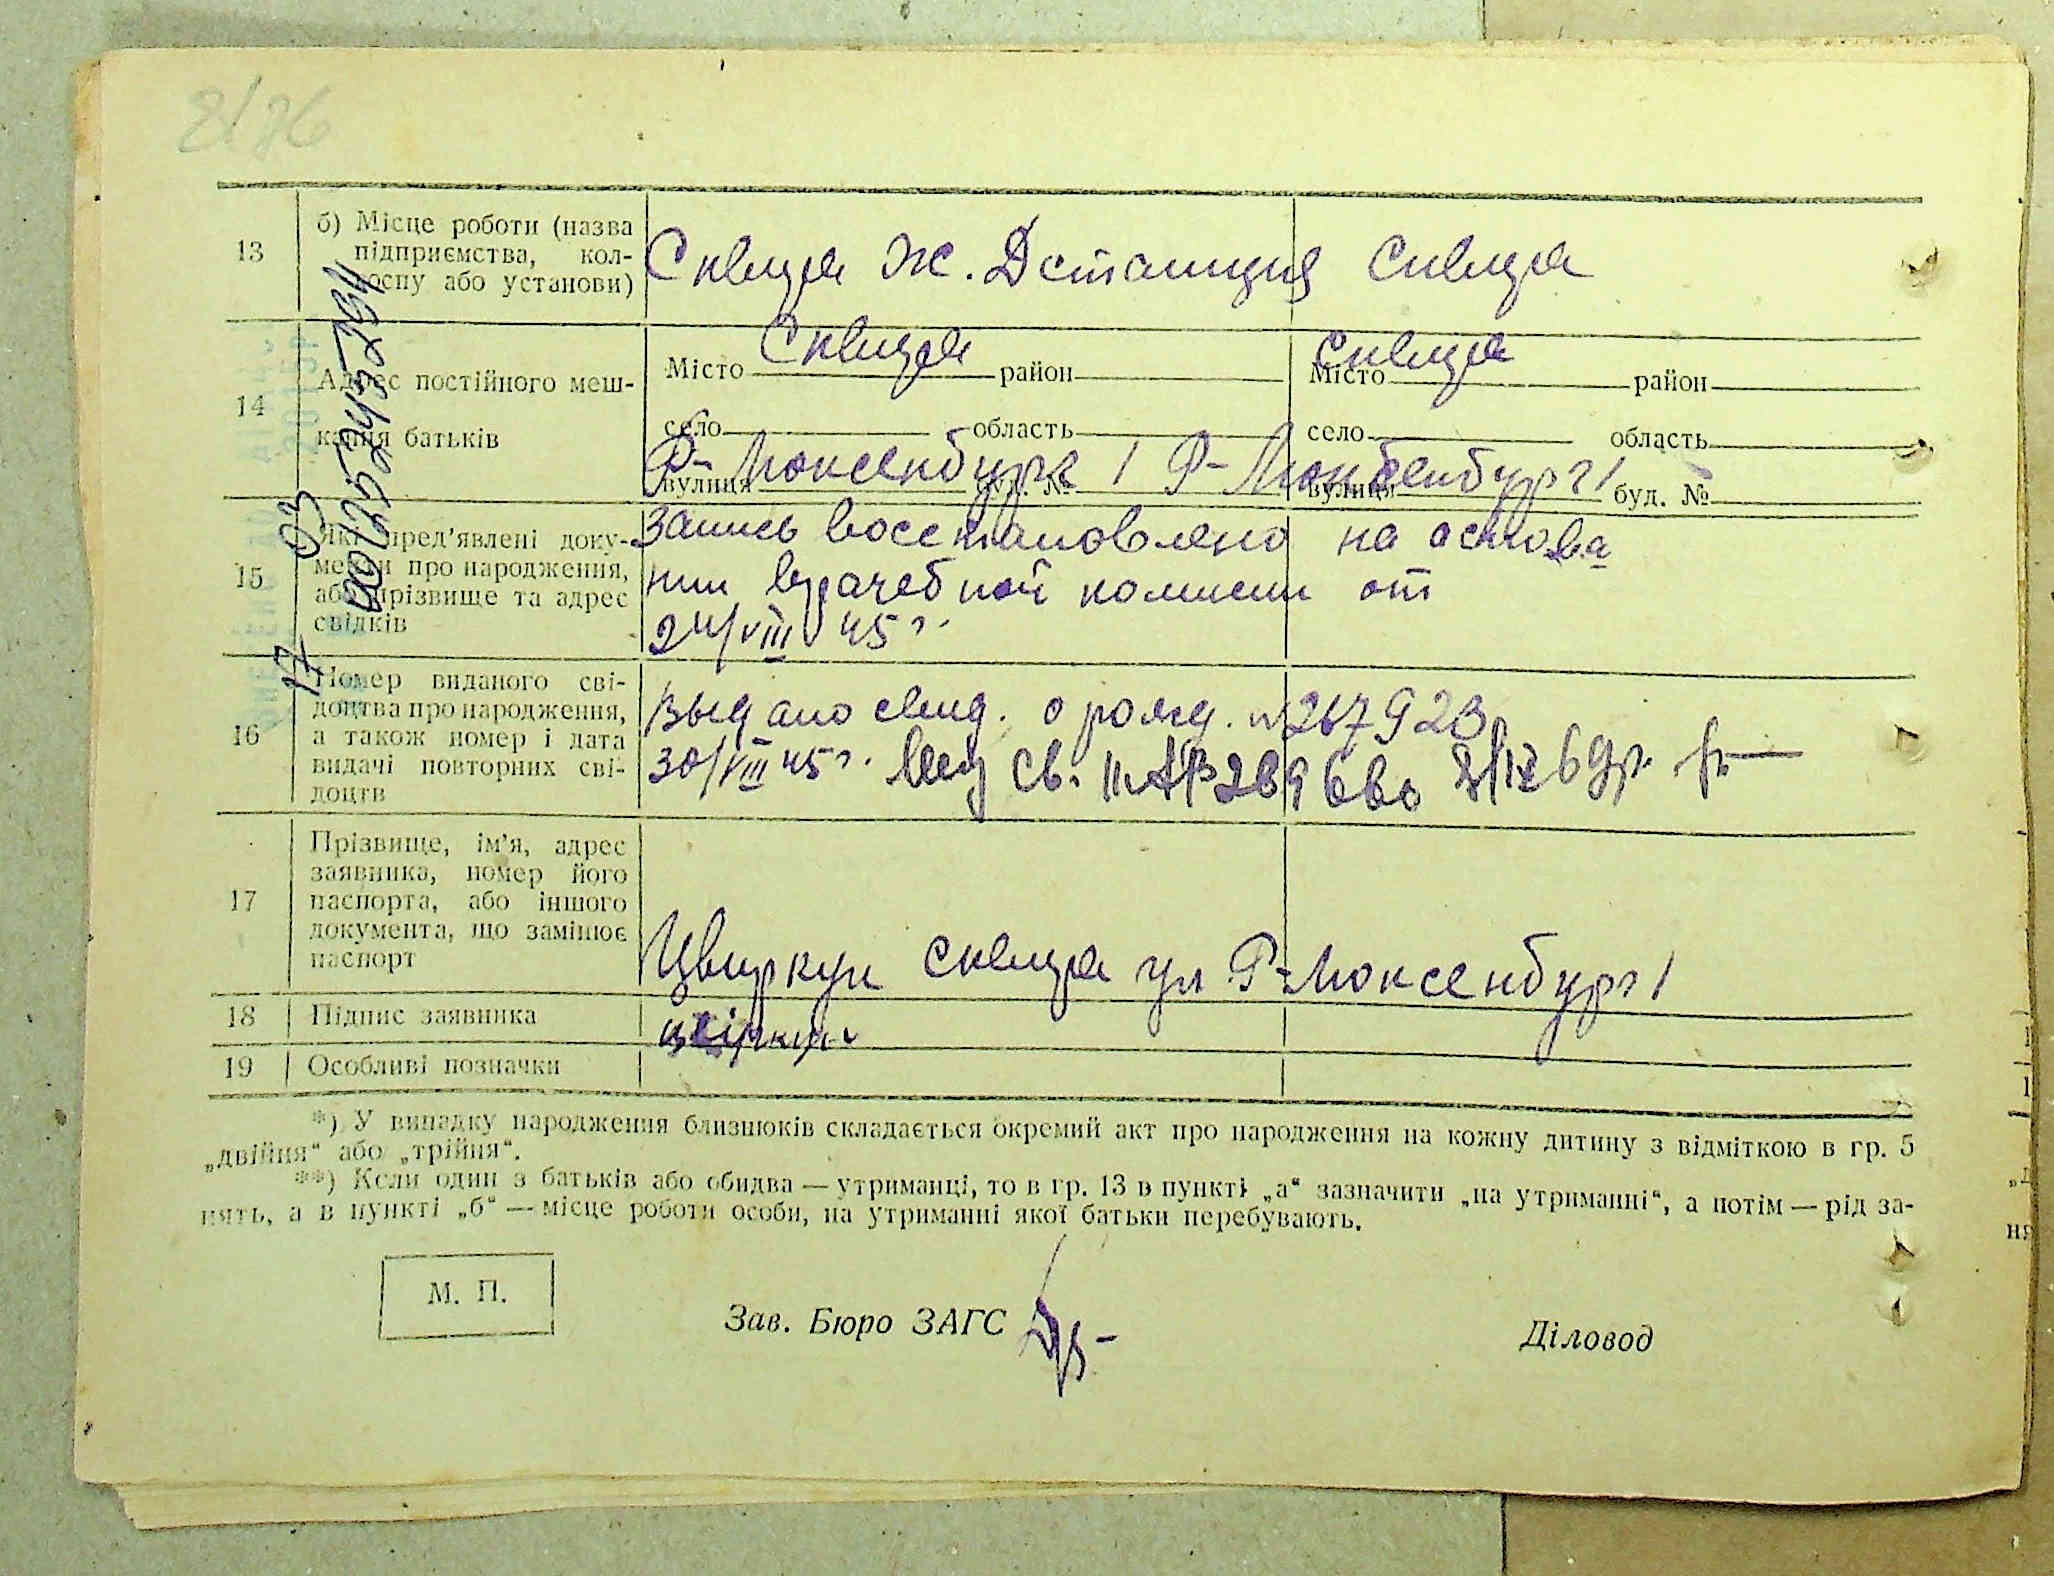 2/76
13
б) Місце роботи (назва
підприємства, кол-
госпу або установи)
Сквира Ж. Д станция Сквира
14
Адрес постійного меш-
кання батьків
Місто Сквира район
Місто Сквира район
село область
село область
Р-Люксенбурга 1 Р-Люксенбург 1
вулиця буд. №
вулиця буд. №
15
Які пред’явлені доку-
менти про народження,
або прізвище та адрес
свідків
Запись восстановлено на основа
нии врачебной комисии от
24/VIII 45 г.
16
Номер виданого сві-
доцтва про народження,
а також номер і дата
видачі повторних сві-
доцтв
Выдано свид. о рожд. № 267923
30/VIII 45 г. св. II
17
Прізвище, ім’я, адрес
заявника, номер його
паспорта, або іншого
документа, що замінює
паспорт
Цвиркун Сквира ул Р-Люксенбург 1
18
Підпис заявника
цвіркун
19
Особливі позначки
*) У випадку народження близнюків складається окремий акт про народження на кожну дитину з відміткою в гр. 5
„двійня“ або „трійня“.
**) Коли один з батьків або обидва — утриманці, то в гр. 13 в пункті „а“ зазначити „на утриманні“, а потім — рід за-
нять, а в пункті „б“ — місце роботи особи, на утриманні якої батьки перебувають.
М. П.
Зав. Бюро ЗАГС
Діловод